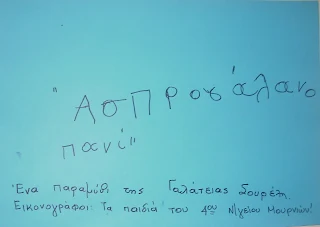 "ΑσΠρογάλανο
πανί"
Ένα παραμύθι της Γαλάτειας Σουρέλη
Εικονογράφοι: Τα παιδιά του 4ου Ν/γείου Μουρνιών!